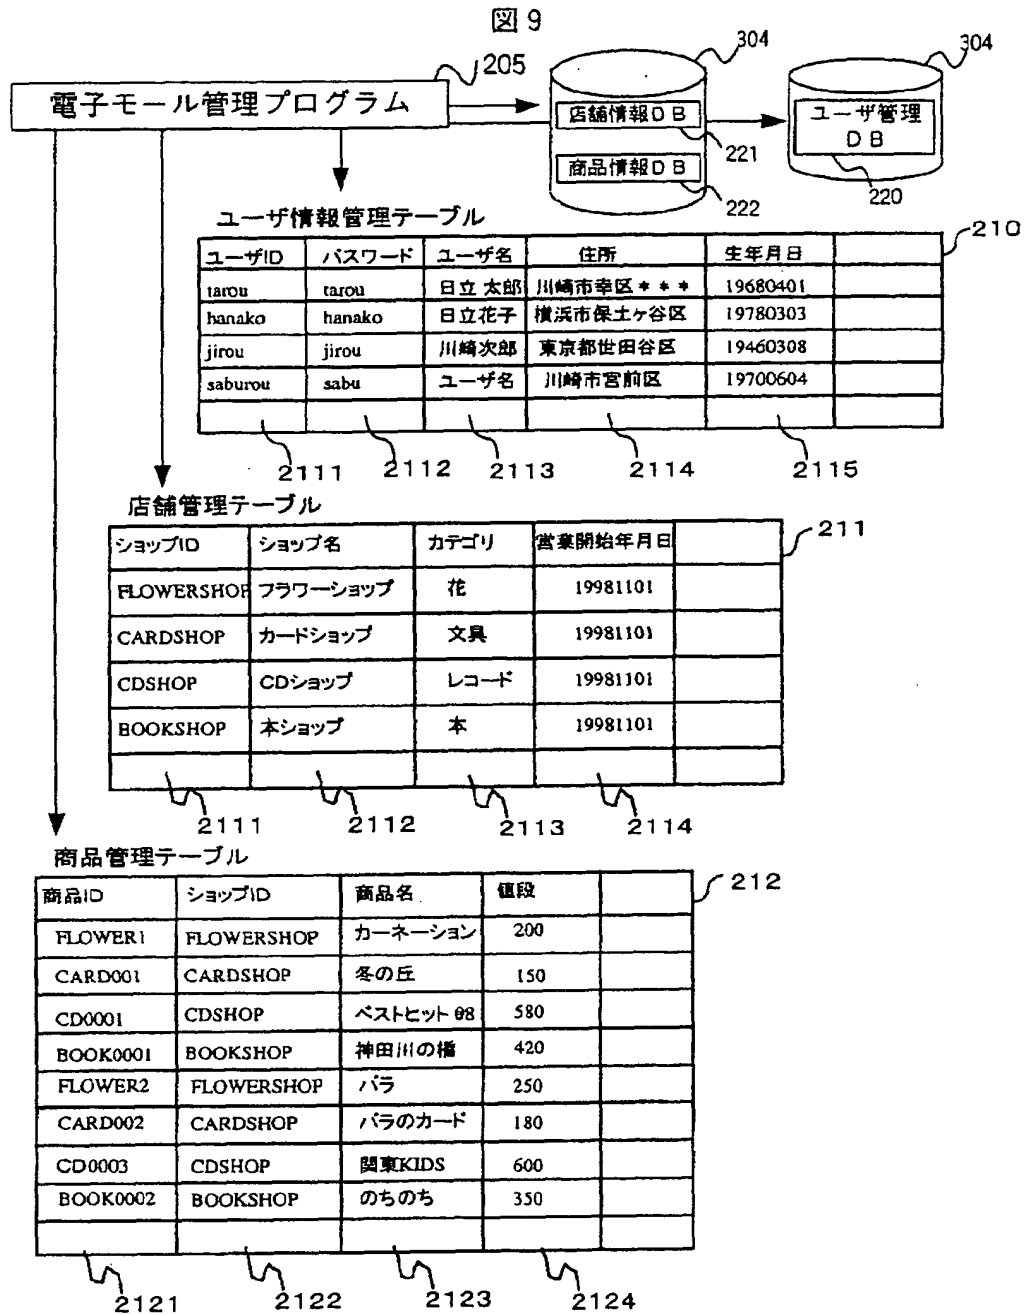 図9
205
304
304
電子モール管理プログラム
店舗情報DB
221
商品情報DB
222
ユーザ管理
DB
220
ユーザ情報管理テーブル
210
ユーザID パスワード ユーザ名 住所 生年月日
tarou tarou 日立 太郎 川崎市幸区*** 19680401
hanako hanako 日立花子 横浜市保土ヶ谷区 19780303
jirou jirou 川崎次郎 東京都世田谷区 19460308
saburou sabu ユーザ名 川崎市宮前区 19700604
2111 2112 2113 2114 2115
店舗管理テーブル
211
ショップID ショップ名 カテゴリ 営業開始年月日
FLOWERSHOP フラワーショップ 花 19981101
CARDSHOP カードショップ 文具 19981101
CDSHOP CDショップ レコード 19981101
BOOKSHOP 本ショップ 本 19981101
2111 2112 2113 2114
商品管理テーブル
212
商品ID ショップID 商品名 値段
FLOWER1 FLOWERSHOP カーネーション 200
CARD001 CARDSHOP 冬の丘 150
CD0001 CDSHOP ベストヒット 98 580
BOOK0001 BOOKSHOP 神田川の橋 420
FLOWER2 FLOWERSHOP バラ 250
CARD002 CARDSHOP バラのカード 180
CD0003 CDSHOP 関東KIDS 600
BOOK0002 BOOKSHOP のちのち 350
2121 2122 2123 2124